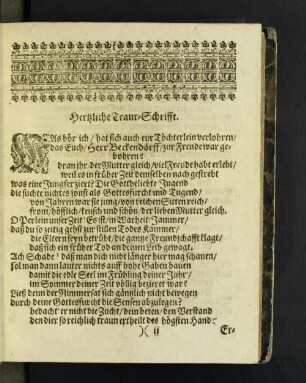 Hertzliche Traur-Schrifft.
WAs hör ich / hat sich auch eur Töchterlein verlohren /
das Euch / Herr Beckendörff / zur Freude war ge-
bohren?
dran ihr der Mutter gleich / viel Freude habt erlebt /
weil es in früher Zeit demselben nach gestrebt
was eine Jungfer ziert? Die Gottbeliebte Jugend
die suchte nichtes sonst als Gottesfurcht und Tugend /
von Jahren war sie jung / von reichen Sitten reich /
from / höfflich / keusch und schön / der lieben Mutter gleich.
O Perlein unser Zeit! Es ist in Warheit Jammer /
daß du so zeitig gehst zur stillen Todes Kammer /
die Eltern seyn betrübt / die gantze Freundschafft klagt /
daß sich ein früher Tod an deinen Leib gewagt.
Ach Schade! daß man dich nicht länger hier mag schauen /
sol man dann lauter nichts auff hohe Gaben bauen
damit die edle Seel im Frühling deiner Jahr /
im Sommer deiner Zeit völlig bezieret war?
Ließ denn der Nimmersat sich gäntzlich nicht bewegen
durch deine Gottesfurcht die Sensen abzulegen?
bedacht er nicht die Zucht / dein beten / den Verstand
den dier so reichlich traun ertheilt des högsten Hand?
)( ij
Er-